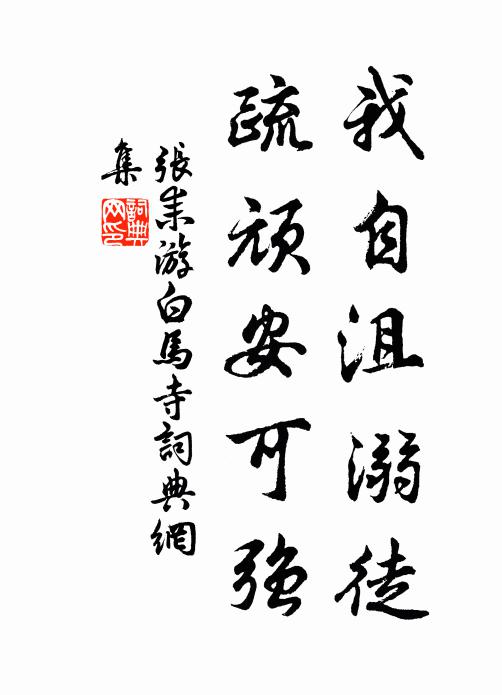 我自沮溺徒
疏頑安可強
張耒游白馬寺詞典網
集
詞典網印